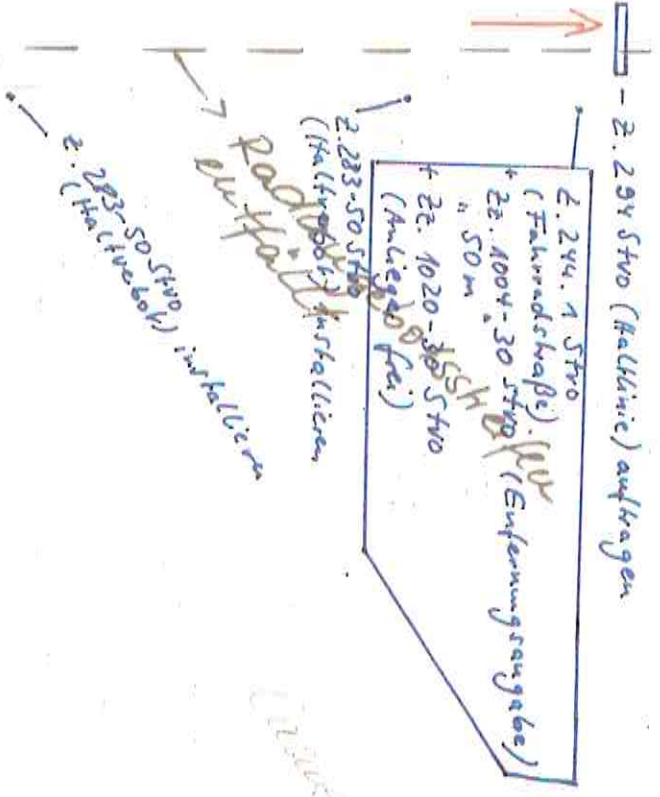 - Z. 294 StVO (Haltlinie) auftragen
Z. 244.1 StVO
(Fahrradstraße)
+ Zz. 1004-30 StVO (Enfernungsangabe)
"50m"
+ Zz. 1020-30 StVO
(Anlieger frei)
Z. 283-50 StVO
(Haltverbot) installieren
entfällt
Z. 283-50 StVO
(Haltverbot) installieren